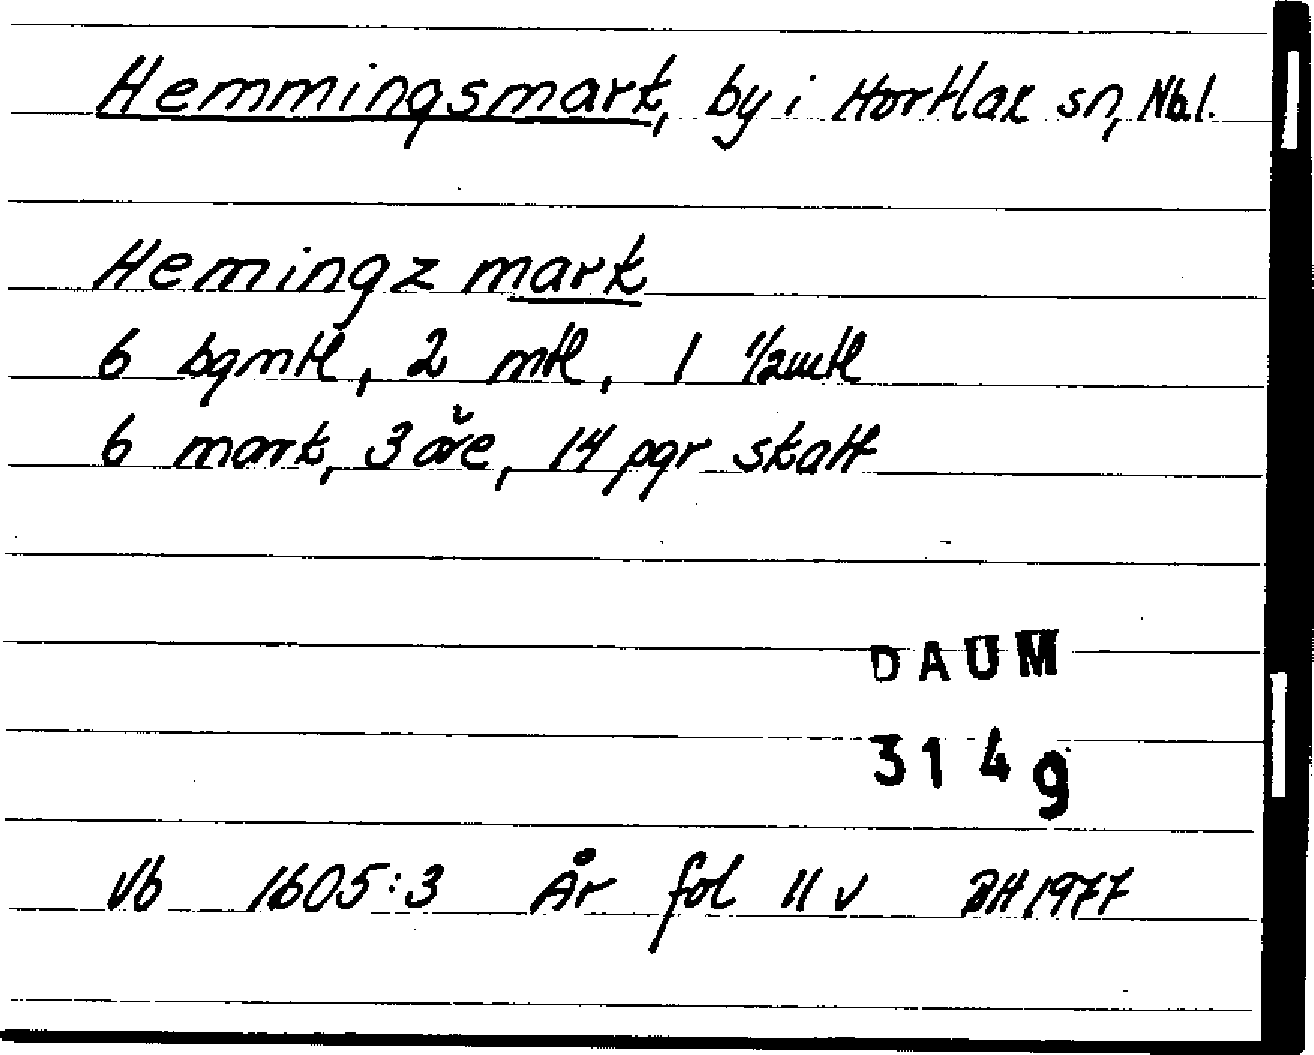 Hemmingsmark, by i Hortlax sn, Nbl.
Hemingz mark
6 bgmtl, 2 mtl, 1 1/2mtl
6 mark, 3 öre, 14 pgr skatt
DAUM
3149
Vb 1605:3 År fol 11 v BH 1977